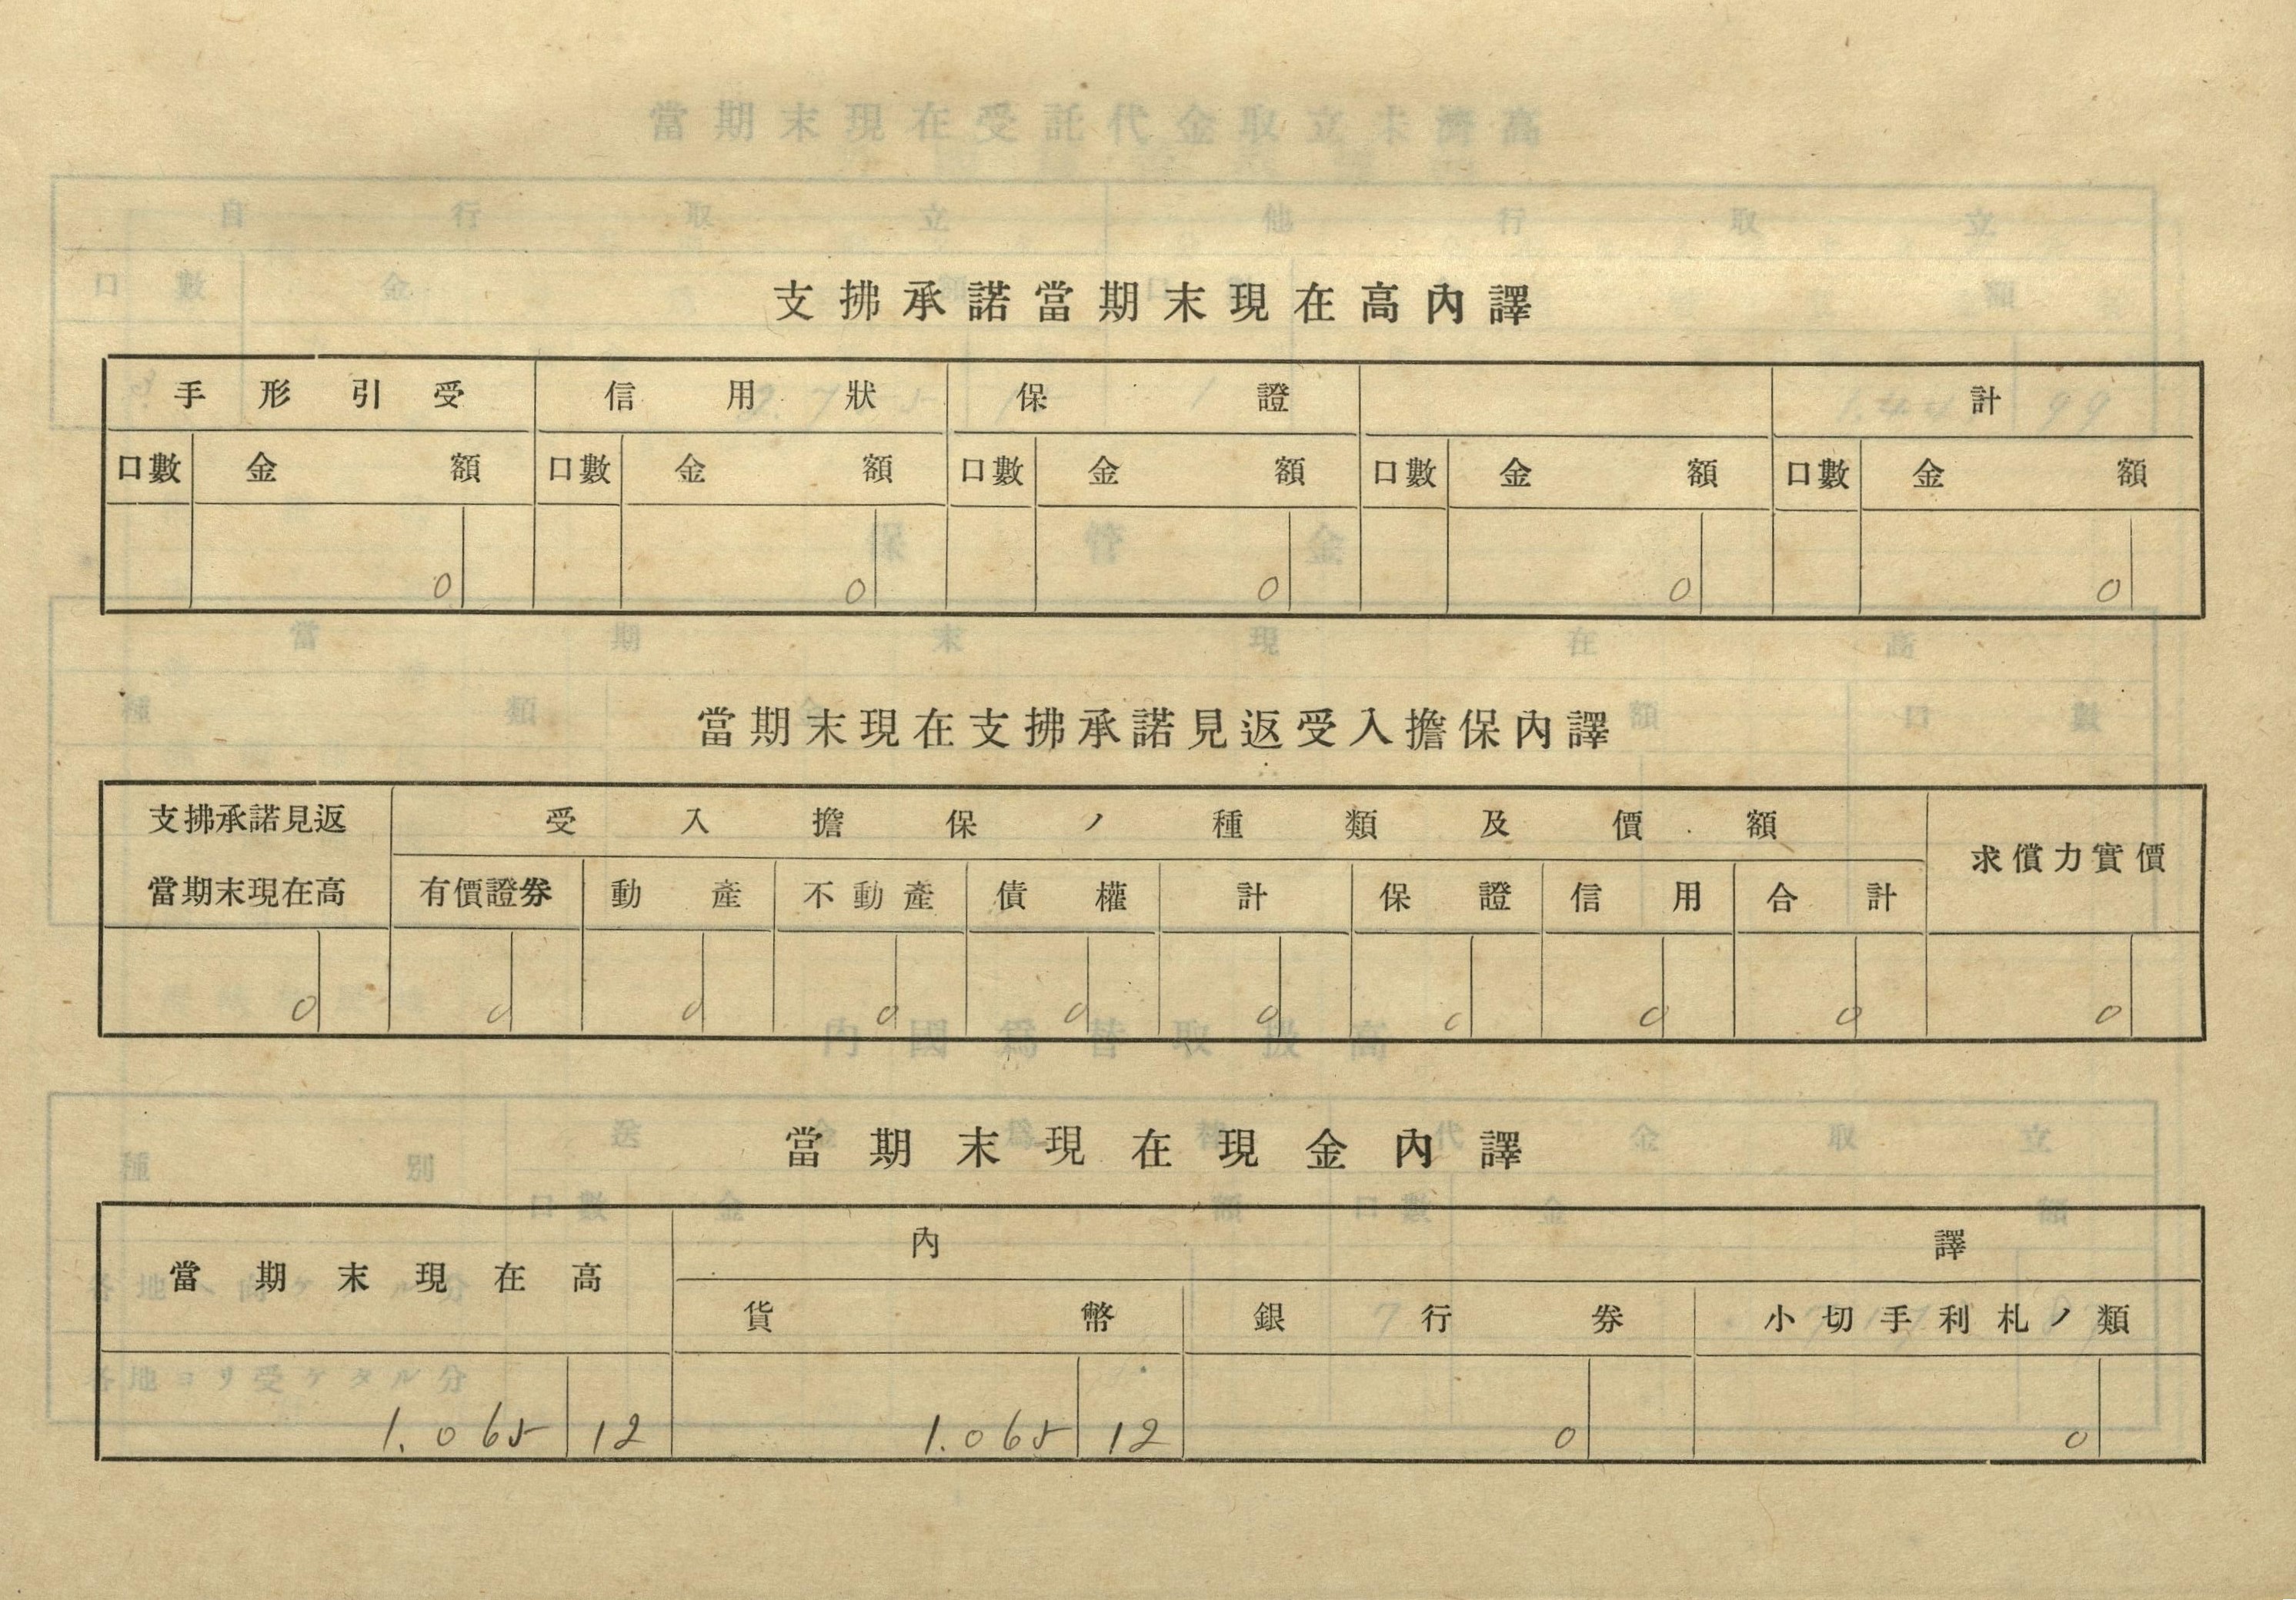 支拂承諾當期末現在高內譯
手形引受 信用狀 保證 計
口數 金額 口數 金額 口數 金額 口數 金額 口數 金額
0 0 0 0 0
當期末現在支拂承諾見返受入擔保內譯
支拂承諾見返 受入擔保ノ種類及價額 求償力實價
當期末現在高 有價證券 動產 不動產 債權 計 保證 信用 合計
0 0 0 0 0 0 0 0 0 0
當期末現在現金內譯
當期末現在高 內譯
貨幣 銀行券 小切手利札ノ類
1.065 12 1.065 12 0 0